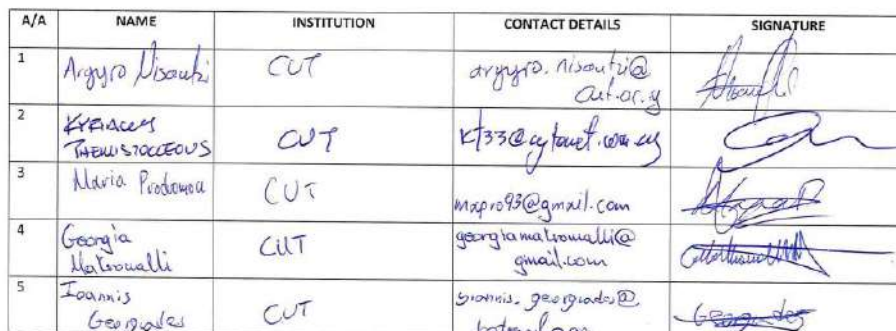 A/A NAME INSTITUTION CONTACT DETAILS SIGNATURE
1 Argyro Nisantzi CUT argyro.nisantzi@
cut.ac.cy
2 KYRIACOS
THEMISTOCLEOUS CUT kt33@cytanet.com.cy
3 Maria Prodromou CUT mapro93@gmail.com
4 Georgia
Matsoukalli CUT georgiamatsoukalli@
gmail.com
5 Ioannis
Georgiades CUT giannis.georgiades@
Georgiades